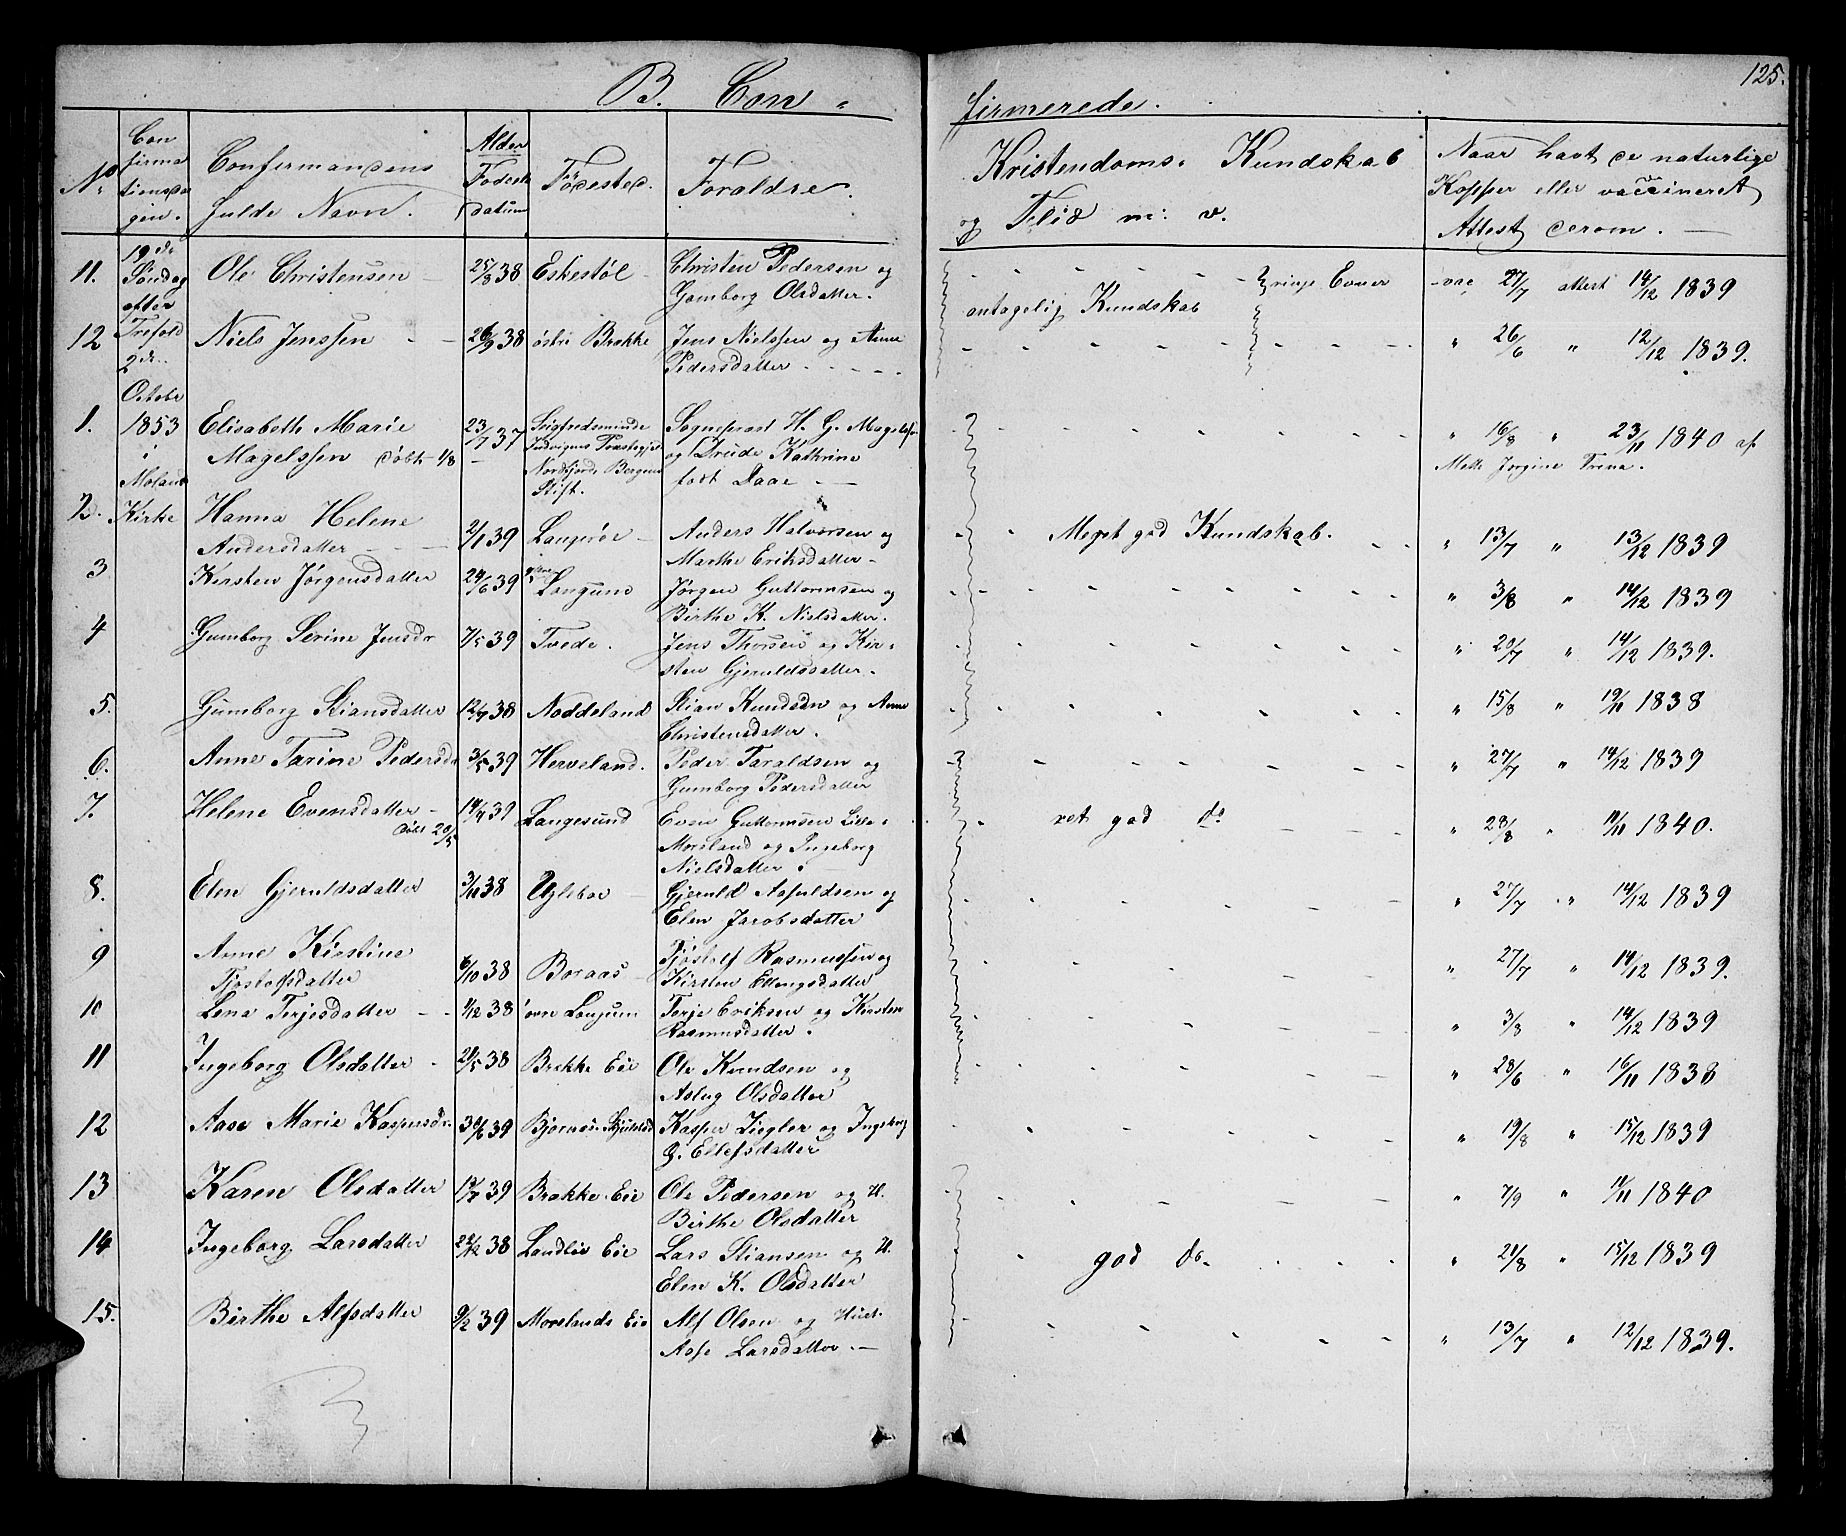 125.
B. Con-
firmerede.
No
Con
firma
tionsda
gen.
Confirmandens
fulde Navn.
Alder
Fodsels
datum
Födested.
Foraldre.
Kristendoms. Kundskab
og Flid m: v.
Naar havt de naturlige
Kopper eller vaccineret
Attest derom.
19de
Söndag
efter
Trefold
2de
October
1853
i
Moland
Kirke
11. Ole Christensen 25/8 38 Eskestöl Christen Pedersen og
Gomborg Olsdatter.
antagelig Kundskab ringe Evner vac 27/7 attest 14/12 1839
12 Niels Jenssen 26/9 38 östre Brekke Jens Nielssen og Anne
Pedersdatter
" 26/6 " 12/12 1839.
1. Elisabeth Marie
Magelssen döbt 1/8
23/7 37
Nordfjord Bergens
Stift.
Sogneprest H. G. Magelssen
og Drude Kathrine
fodt Daae
" 16/8 " 23/11 1840 af
Mette Jorgine Trina.
2. Hanna Helene
Andersdatter 2/1 39 Langröe Anders Halvorsen og
Marthe Eriksdatter
Meget god Kundskab. " 13/7 " 13/12 1839
3 Kirsten Jörgensdatter 24/6 39 Langsund Jörgen Guttormsen og
Birthe K. Nielsdatter.
" 3/8 " 14/12 1839
4 Gumborg Serine Jensdr 7/5 39 Tvede. Jens Thorsen og Kir-
sten Gjeruldsdatter.
" 20/7 " 14/12 1839.
5. Gumborg Stiansdatter 12/7 38 Noddeland Stian Knudsen og Anne
Christensdatter.
" 15/8 " 19/11 1838
6. Anne Tarine Pedersdr 3/5 39 Herveland. Peder Taraldsen og
Gumborg Pedersdatter
" 27/7 " 14/12 1839
7. Helene Evensdatter
döbt 20/5
14/4 39 Langesund Even Guttormsen Lille-
Moreland og Ingeborg
Nielsdatter.
ret god do " 28/8 " 11/11 1840.
8. Elen Gjeruldsdatter 3/10 38 Ugleboe Gjeruld Aasuldsen og
Elen Jacobsdatter
" 27/7 " 14/12 1839
9 Anne Kirstine
Tjostolfsdatter 6/10 38 Boraas Tjöstolf Rasmussen og
Kirsten Ellingsdatter
" 27/7 " 14/12 1839.
10 Lena Terjesdatter 1/12 38 övre Langsum Terje Eriksen og Kirsten
Rasmusdatter.
" 3/8 " 14/12 1839
11 Ingeborg Olsdatter 21/5 38 Brekke Eie Ole Knudsen og
Aslug Olsdatter
" 28/6 " 16/11 1838
12 Aase Marie Kaspersdr. 30/6 39 Bjornaas Kasper Ziegler og Ingeborg
G. Ellefsdatter
" 19/8 " 15/12 1839
13 Karen Olsdatter 39 Brekke Eie Ole Pedersen og H.
Birthe Olsdatter
" 7/9 " 11/11 1840
14 Ingeborg Larsdatter 28/12 38 Landlöv Eie Lars Stiansen og H.
Elen K. Olsdatter
god do. " 21/8 " 15/12 1839
15. Birthe Alfsdatter 9/2 39 Morelands Eie Alf Olsen og Hust.
Aase Larsdatter.
" 13/7 " 12/12 1839.